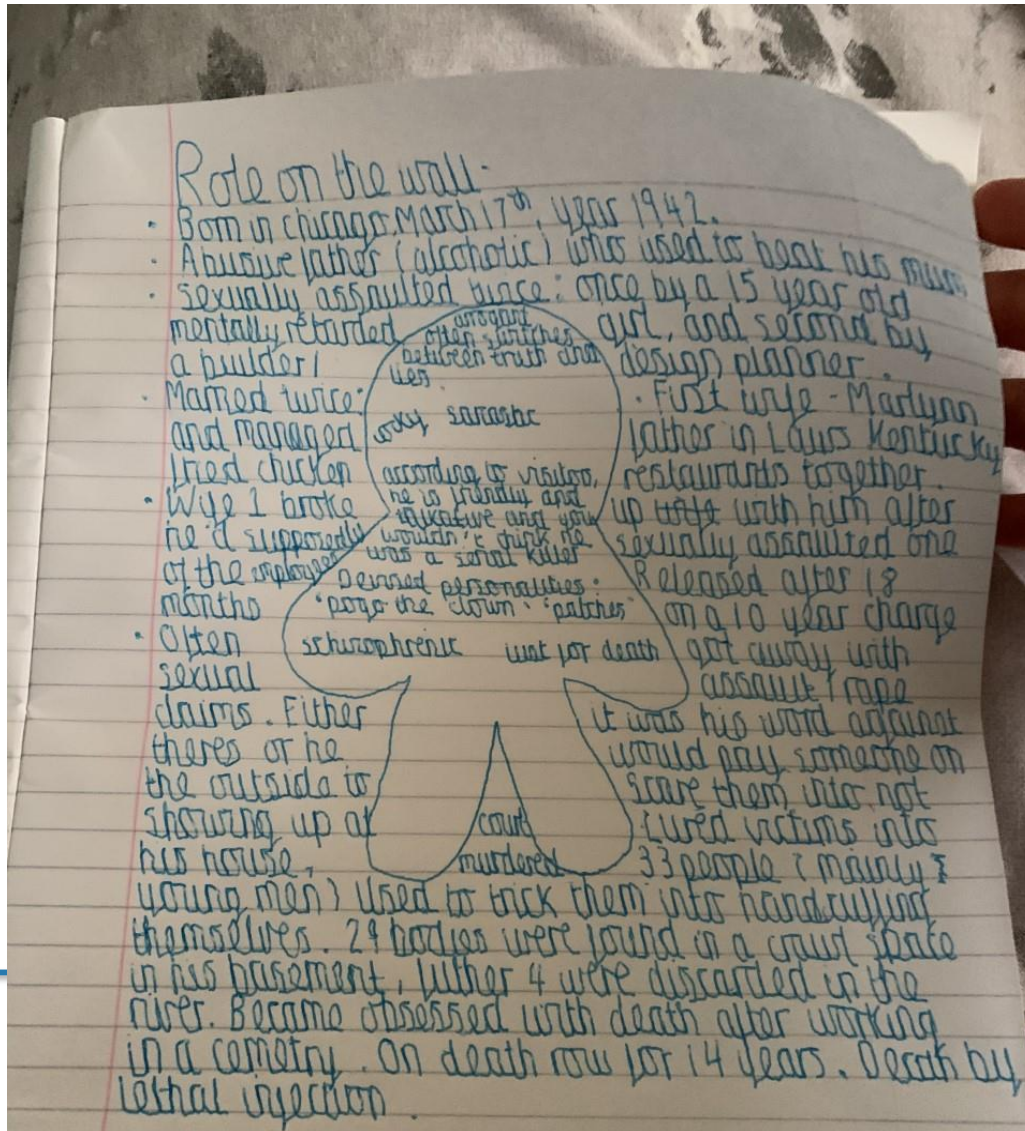 Role on the wall.
· Born in chicago March 17th, year 1942.
· Abusive father (alcoholic) who used to beat his mum
· sexually assaulted twice: once by a 15 year old
mentally retarded girl, and second by
a builder/ design planner.
· Married twice: · First wife - Marlynn
and managed father in Laws Kentucky
fried chicken restaurants together.
· Wife 1 broke up with him after
he'd supposedly sexually assaulted one
of the employees Released after 18
months on a 10 year charge
· Often got away with
sexual assault/rape
claims. Either it was his word against
theres or he would pay someone on
the outside to scare them into not
showing up at court Lured victims into
his house, murdered 33 people (mainly
young men) Used to trick them into handcuffing
themselves. 29 bodies were found in a crawl space
in his basement, futher 4 were discarded in the
river. Became obsessed with death after working
in a cemetry. On death row for 14 years. Death by
lethal injection.
arrogant
often switches
between truth and
lies
cocky sarcastic
according to visitors,
he is friendly and
talkative and you
wouldn't think he
was a serial killer
Devised personalities:
"pogo the clown". "patches"
schizophrenic lust for death